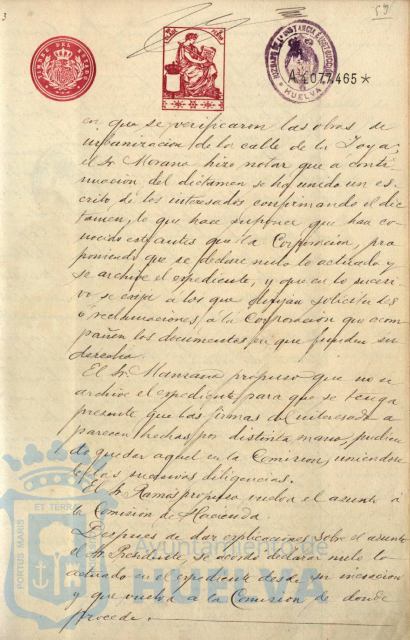 3
59
TIMBRE DEL ESTADO
HUELVA
A.4077,465*
en que se verificaron las obras de
urbanización de la calle de la Joya;
el Sr. Morano hizo notar que a conti-
nuación del dictamen se ha unido un es-
crito de los interesados confirmando el dic-
tamen, lo que hace suponer que han co-
nocido este antes que la Corporación, pro-
poniendo que se declare nulo lo actuado y
se archive el expediente, y que en lo sucesi-
vo se exija a los que dirijan solicitudes
ó reclamaciones, á la Corporación que acom-
pañen los documentos en que funden su
derecho.
El Sr. Manzano propuso que no se
archive el expediente para que se tenga
presente que las firmas del interesado a
parecen hechas por distinta mano, pudien-
do quedar aquel en la Comision, uniendose
las sucesivas diligencias.
El Sr. Ramos propuso, vuelva el asunto á
la Comision de Hacienda.
Despues de dar explicaciones sobre el asunto
el Sr. Presidente, se acordó declarar nulo lo
actuado en el expediente desde su incoacion
y que vuelva á la Comision de donde
procede.
PORTUS MARIS
ET TERRÆ
Ayuntamiento de
HUELVA